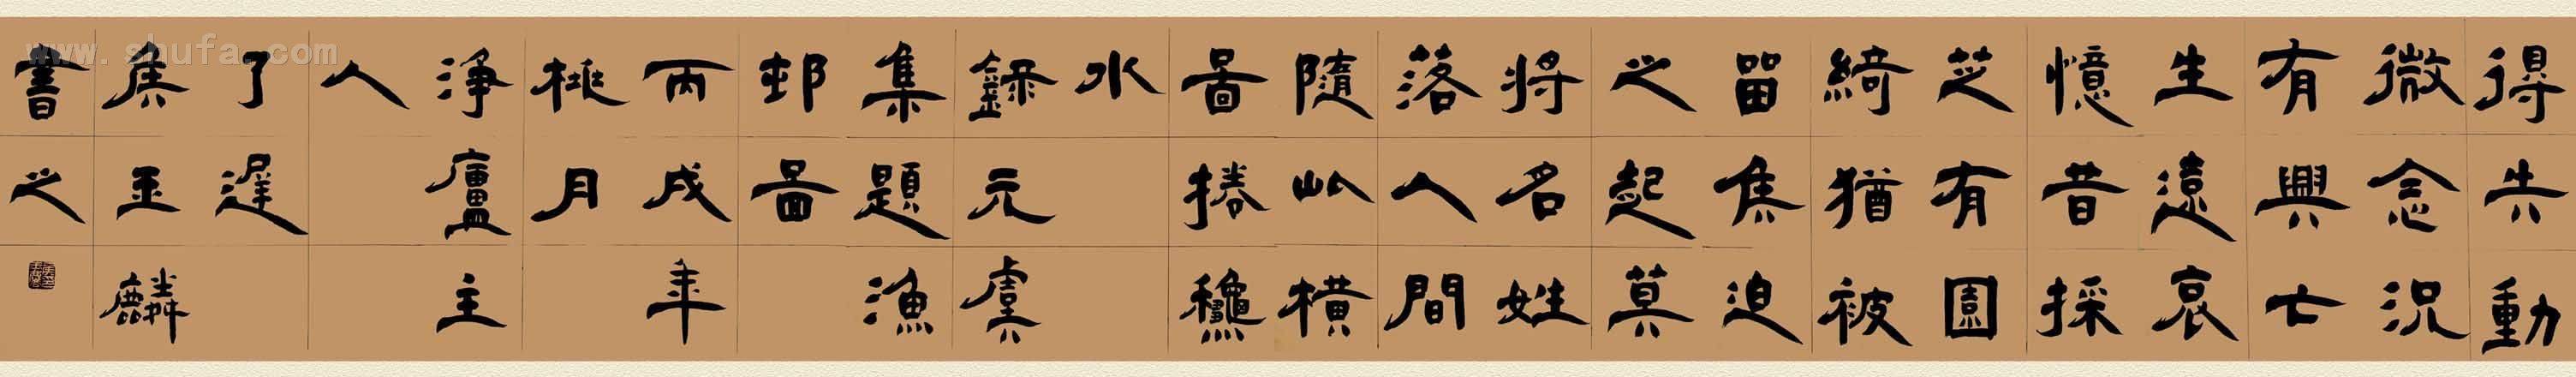 得失動
微念況
有興亡
生遠哀
憶昔採
芝有園
綺猶被
留焦迫
之起莫
將名姓
落人間
隨此橫
圖捲龝
水
錄元虞
集題漁
邨圖
丙戌年
桃月
淨廬主
人
了遲
焦玉麟
書之
www.shufa.com